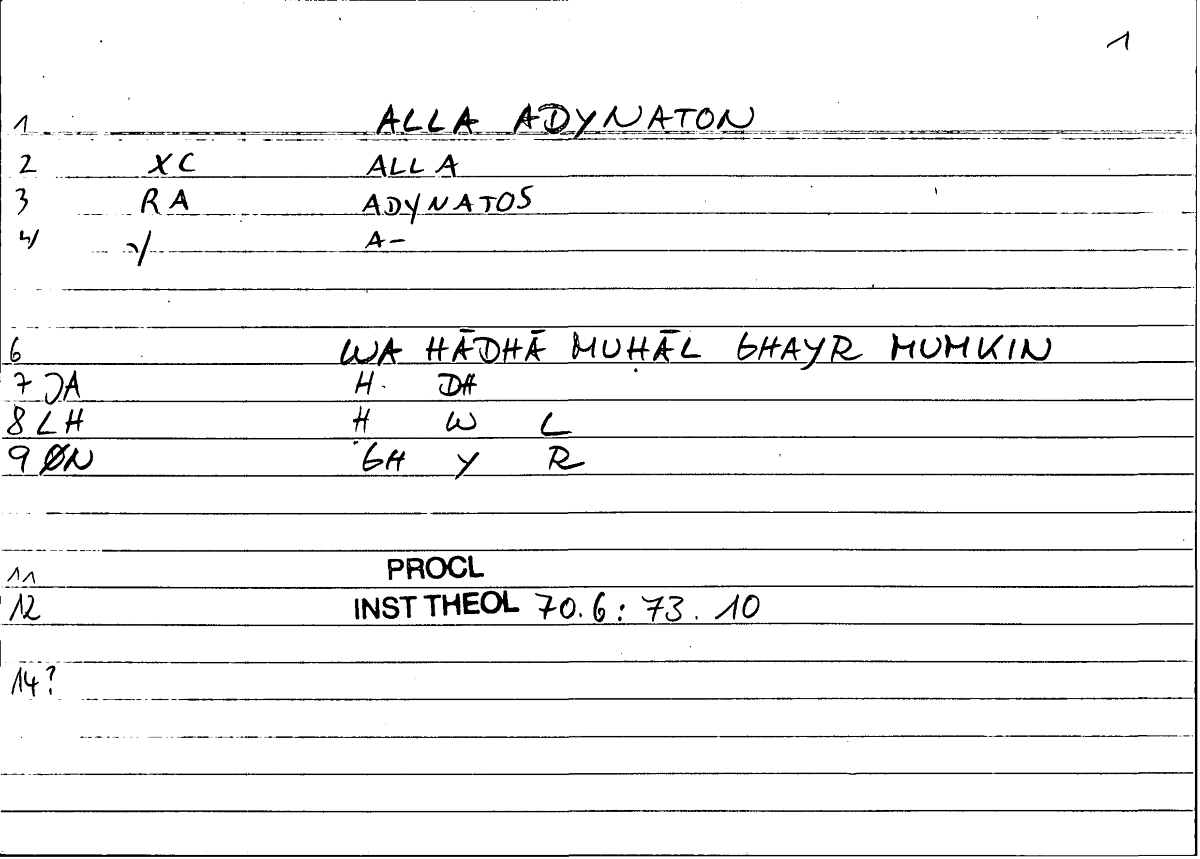 1
1 ALLA ADYNATON
2 XC ALLA
3 RA ADYNATOS
4 γ A-
6 WA HĀDHĀ MUḤĀL GHAYR MUMKIN
7 JA H DH
8 LH Ḥ W L
9 ØN GH Y R
11 PROCL
12 INST THEOL 70.6: 73.10
14?